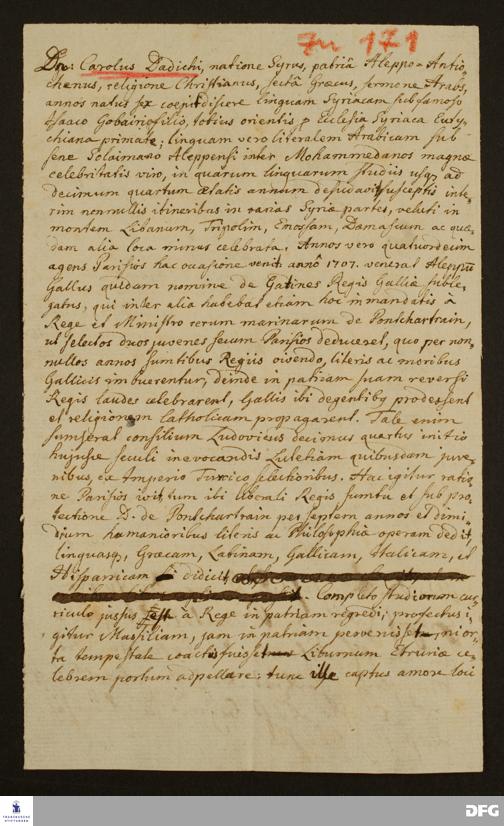 Zu 171
Dn: Carolus Dadichi, natione Syrus, patria Aleppo-Antio
chenus, religione Christianus, secta Græcus, sermone Arabs,
annos natus sex coepit discere linguam Syriacam sub famoso
Isaaco Gobainofilio, totius orientis p Ecclesia Syriaca Euty
chiana primate; linguam vero literalem Arabicam sub
sene Solaimano Aleppensi inter Mohammedanos magnæ
celebritatis viro, in quarum linguarum studiis usq ad
decimum quartum ætatis annum desudavit, susceptis inte
rim nonnullis itineribus in varias Syriæ partes, veluti in
montem Libanum, Tripolim, Emossam, Damascum ac quæ
dam alia loca minus celebrata. Annos vero quatuordecim
agens Parisios hac occasione venit anno 1707. venerat Aleppum
Gallus quidam nomine de Gatines Regis Galliæ suble
gatus, qui inter alia habebat etiam hoc in mandatis à
Rege et Ministro rerum marinarum de Pontchartrain,
ut selectos duos juvenes secum Parisios deduceret, quo per non
nullos annos sumtibus Regiis vivendo, literis ac moribus
Gallicis imbuerentur, deinde in patriam suam reversi
Regis laudes celebrarent, Gallis ibi degentibq prodessent
et religionem Catholicam propagarent. Tale enim
sumserat consilium Ludovicus decimus quartus initio
hujusce seculi in evocandis Lutetiam quibusdam juve
nibus, ex Imperio Turcico selectioribus. Hac igitur ratio
ne Parisios ibi liberali Regis sumtu et sub pro
tectione D. de Pontchartrain per septem annos et dimi
dium humanioribus literis ac Philosophiæ operam dedit
linguasq, Græcam, Latinam, Gallicam, Italicam, et
Hispanicam didicit
Completo studiorum cur
riculo jussus est à Rege in patriam regredi; profectus i
gitur Massiliam, jam in patriam pervenisset, ni or
ta tempestate coactus fuisset Liburnum Etruriæ ce
lebrem portum adpellere: tunc ille captus amore loci
FRANCKESCHE STIFTUNGEN
DFG